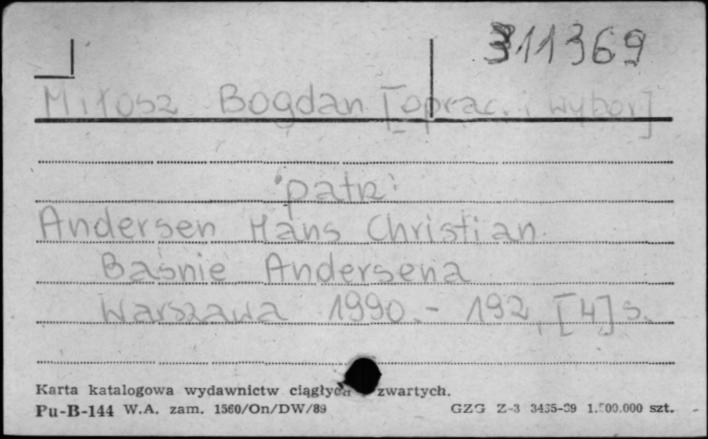 311369
Miłosz Bogdan [oprac. i wybór]
patrz:
Andersen Hans Christian
Baśnie Andersena
Warszawa 1990.- 192, [4] s.
Karta katalogowa wydawnictw ciągłych zwartych.
Pu-B-144 W.A. zam. 1560/On/DW/89 GZG Z-3 3435-89 1.500.000 szt.